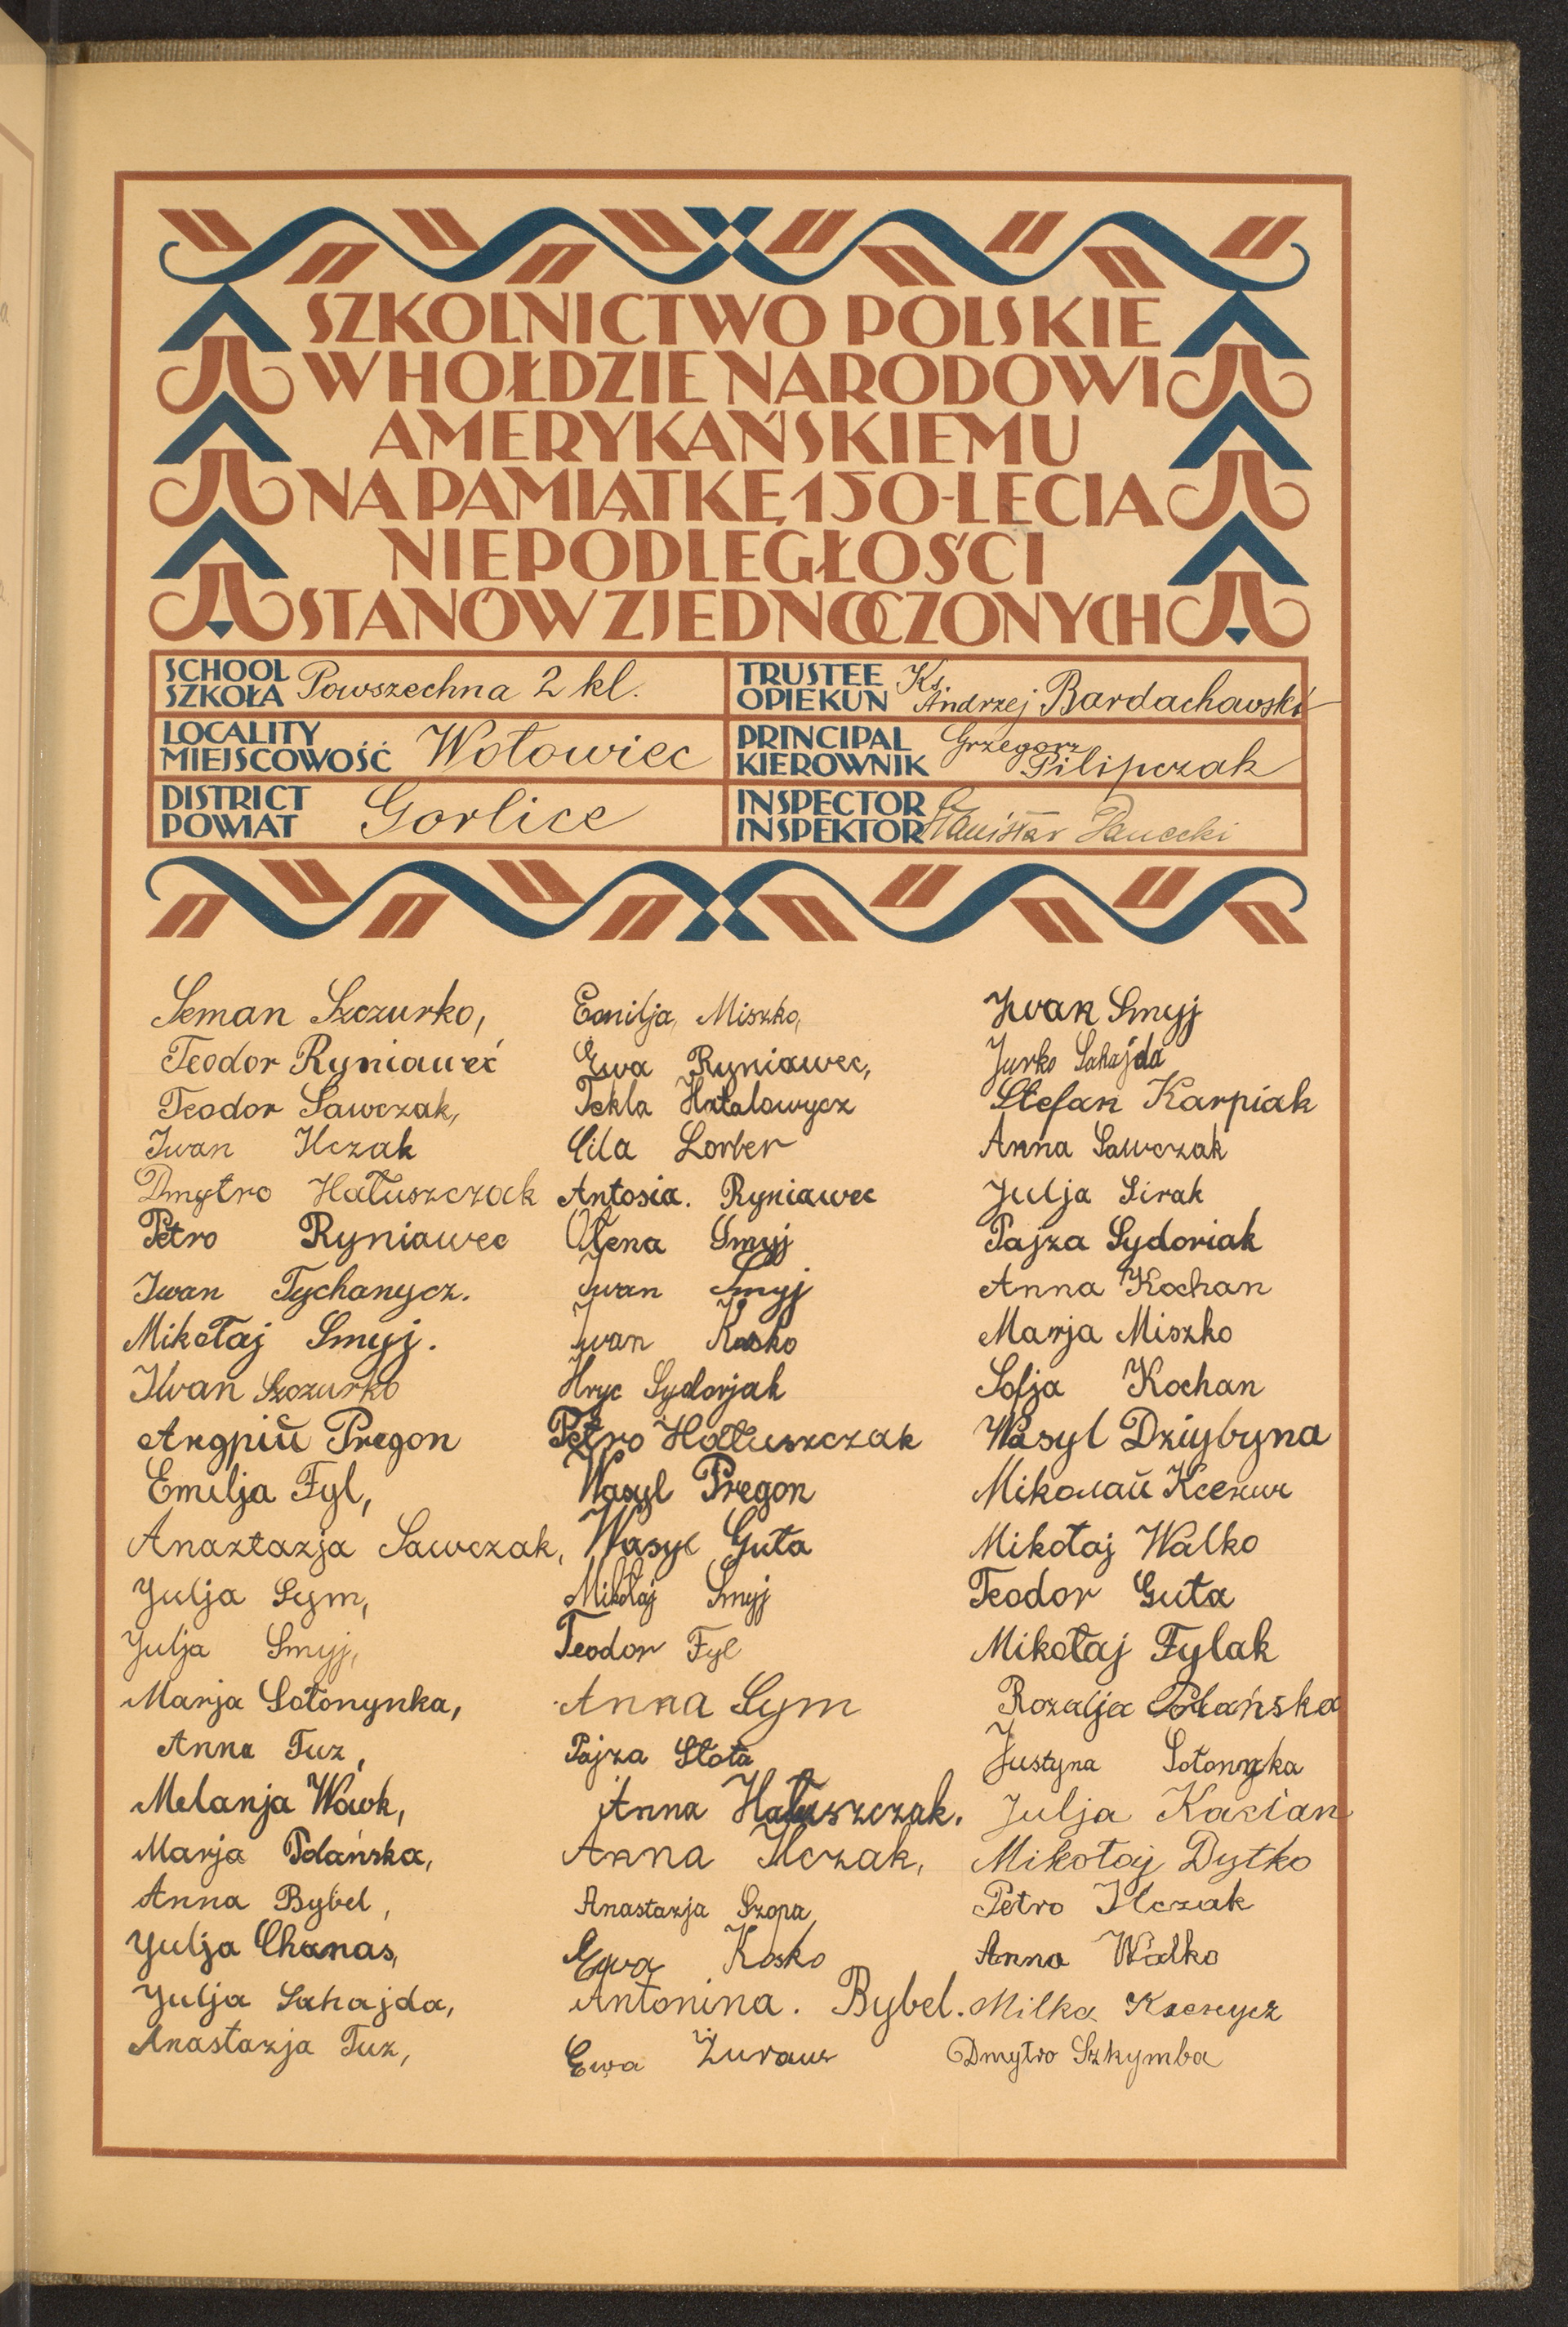 SZKOLNICTWO POLSKIE
W HOŁDZIE NARODOWI
AMERYKAŃSKIEMU
NA PAMIĄTKĘ 150-LECIA
NIEPODLEGŁOŚCI
STANÓW ZJEDNOCZONYCH
SCHOOL
SZKOŁA Powszechna 2 kl.
LOCALITY
MIEJSCOWOŚĆ Wołowiec
DISTRICT
POWIAT Gorlice
TRUSTEE
OPIEKUN Ks. Andrzej Bardachowski
PRINCIPAL
KIEROWNIK Grzegorz Pilipczak
INSPECTOR
INSPEKTOR Stanisław
Seman Szczurko,
Teodor Ryniaweć
Teodor Sawczak,
Iwan Ilczak
Dmytro Hałuszczak
Petro Ryniawec
Iwan Tychanycz.
Mikołaj Smyj.
Iwan Szczurko
Pregon
Emilja Fyl,
Anaztazja Sawczak,
Julja Sym,
Julja Smyj,
Marja Sołonynka,
Anna Tuz,
Melanja Wówk,
Marja Polańska,
Anna Bybel,
Julja Chanas,
Julja Sahajda,
Anastazja Tuz,
Emilja Miszko,
Ewa Ryniawec,
Tekla Hatalowycz
Cila Lorber
Antosia. Ryniawec
Ołena Smyj
Iwan Smyj
Iwan Kosko
Hryc Sydorjak
Petro Hałuszczak
Wasyl Pregon
Wasyl Guta
Mikołaj Smyj
Teodor Fyl
Anna Sym
Pajza Słota
Anna Hałuszczak.
Anna Ilczak,
Anastazja Szopa,
Ewa Kosko
Antonina. Bybel.
Ewa Żuraw
Iwan Smyj
Jurko Sahajda
Stefan Karpiak
Anna Sawczak
Julja Sirak
Pajza Sydoriak
Anna Kochan
Marja Miszko
Sofja Kochan
Wasyl Dziybyna
Mikołaj Walko
Teodor Guta
Mikołaj Fylak
Rozalja Polańska
Justyna
Julja Kacian
Mikołaj Dytko
Petro Ilczak
Anna Walko
Milka
Dmytro Szkymba